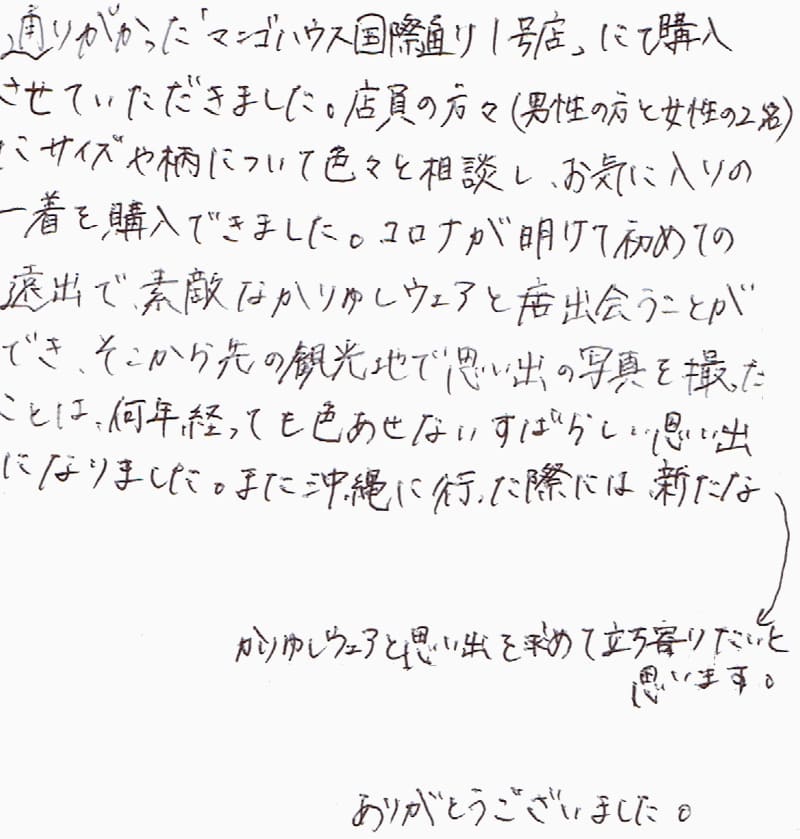 通りがかった「マンゴハウス国際通り1号店」にて購入
させていただきました。店員の方々(男性の方と女性の2名)
にサイズや柄について色々と相談し、お気に入りの
一着を購入できました。コロナが明けて初めての
遠出で、素敵なかりゆしウェアと出会うことが
でき、そこから先の観光地で思い出の写真を撮った
ことは、何年経っても色あせないすばらしい思い出
になりました。また沖縄に行った際には、新たな
かりゆしウェアと思い出を求めて立ち寄りたいと
思います。
ありがとうございました。